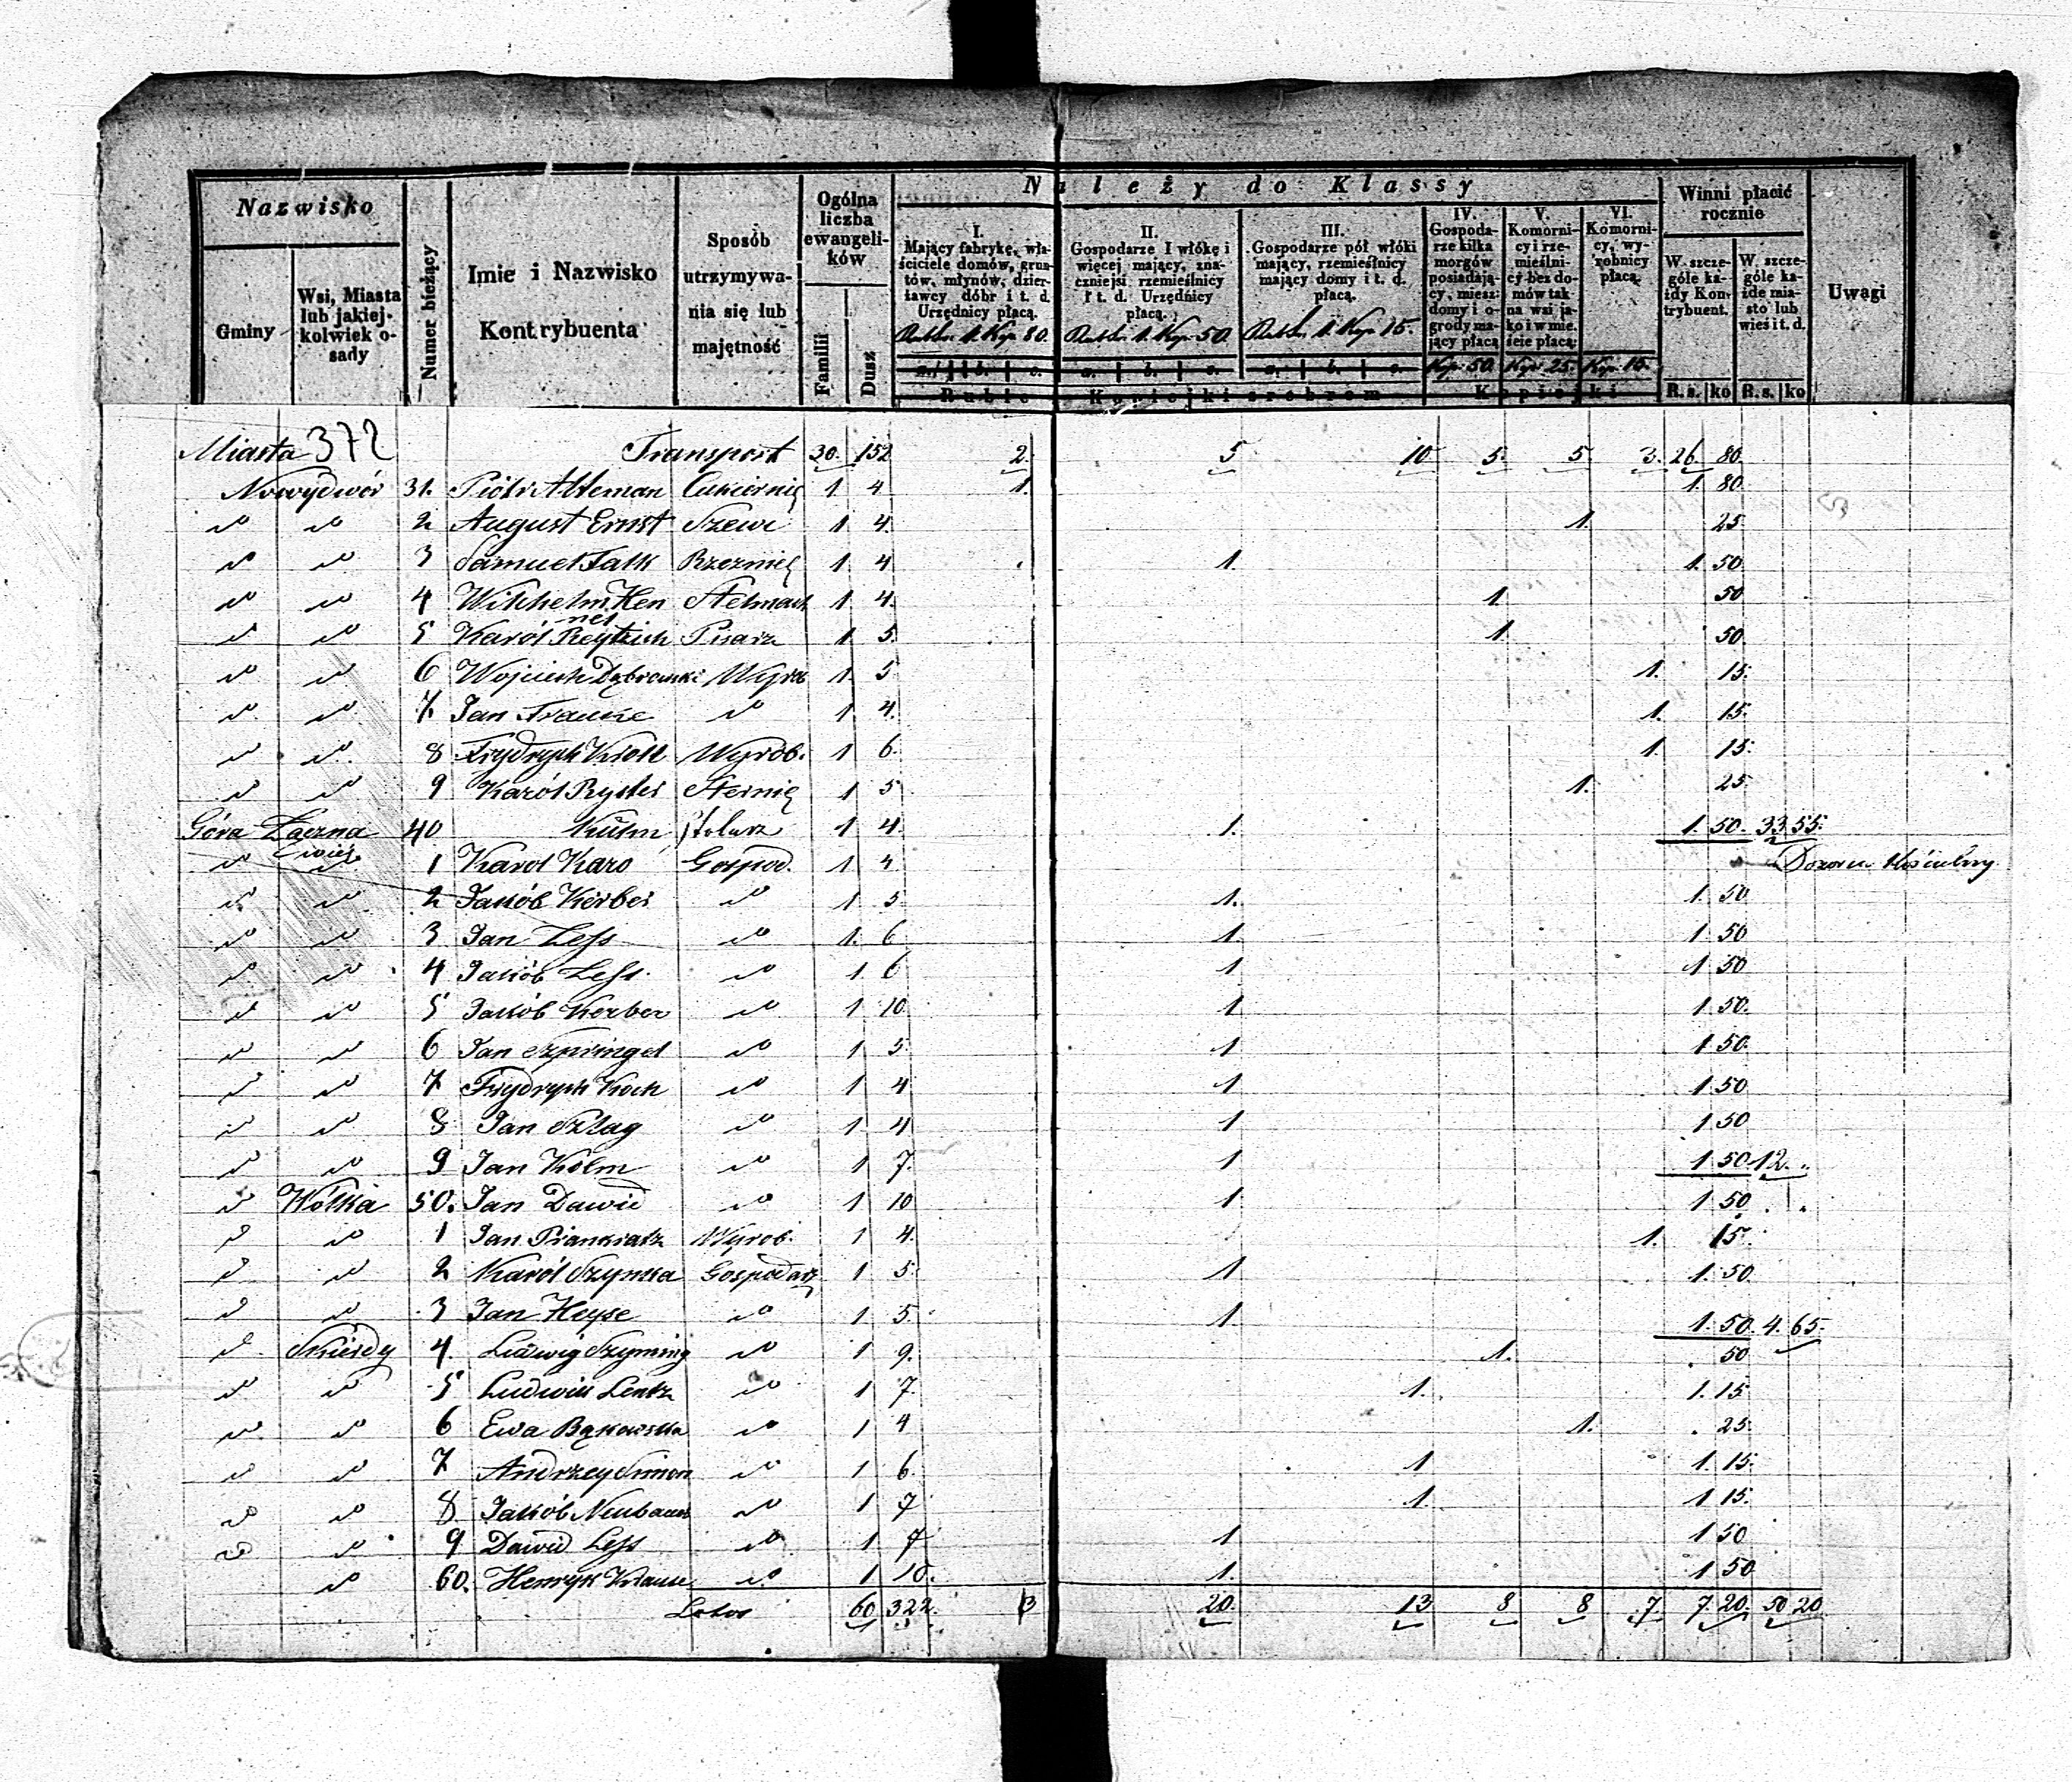 Nazwisko
Gminy
Wsi, Miasta lub jakiej-kolwiek o-sady
Numer bieżący
Imie i Nazwisko Kontrybuenta
Sposób utrzymywa-nia się lub majętność
Ogólna liczba ewangeli-ków
Familii
Dusz
Należy do Klassy
I. Mający fabrykę, wła-ściciele domów, grun-tów, młynów, dzier-ławcy dóbr i t. d. Urzędnicy płacą.
Rubl. 1. Kop. 80.
II. Gospodarze 1 włókę i więcej mający, zna-czniejsi rzemieślnicy i t. d. Urzędnicy płacą.
Rubl. 1. Kop. 50.
III. Gospodarze pół włóki mający, rzemieślnicy mający domy i t. d. płacą.
Rubl. 1. Kop. 15.
IV. Gospoda-rze kilka morgów posiadają-cy, miesz. domy i o-grody ma-jący płacą
Kop. 50.
V. Komorni-cy i rze-mieślni-cy bez do-mów tak na wsi ja-ko i w mie-ście płacą:
Kop. 25.
VI. Komorni-cy, wy-robnicy płacą.
Kop. 15.
a. b. c. a. b. c. a. b. c.
Rubie Kopiejki srebrem Kopiejki
Winni płacić rocznie
W szcze-góle ka-żdy Kon-trybuent.
W szcze-góle ka-żde mia-sto lub wieś i t. d.
R.s. ko R.s. ko
Uwagi
Miasta 372 Transport 30. 152 2. 5 10 5. 5. 3. 26. 80.
Nowydwór 31. Piotr Alteman Cukiernię 1 4 1. 1. 80.
2 August Ernst Szewc 1 4. 1. 25
3 Samuel Falk Rzeźnię 1 4 1. 1. 50.
4 Wilhelm Ken Stelmach 1 4. 1. 50
ner
5 Karól Pisarz 1. 5. 1. 50.
6 Wojciech Dąbrowski Wyrob 1. 5 1. 15.
7. Jan Franke 1 4. 1. 15.
8 Frydrych Kroll Wyrob. 1 6. 1. 15.
9 Karól Ryster Sternię 1 5 1. 25.
Góra Łączna 40 Kühn Stolarz 1 4. 1. 1. 50. 33 55.
wieś 1 Karol Karo Gospod. 1 4. Dozorca Kościelny.
2 Jakób Kerber 1 5 1. 1. 50
3 Jan Less 1. 6 1. 1. 50
4 Jakób Less. 1 6 1 1 50
5 Jakób Kerber 1 10. 1 1 50.
6 Jan Szpringel 1 5. 1 1 50.
7 Frydrych Koch 1 4 1 1 50
8 Jan Szlag 1 4 1 1 50
9 Jan Kólm 1 7. 1 1 50 12.
Wólka 50. Jan Dawid 1 10 1 1 50
1 Jan Pankratz Wyrob. 1 4. 1. 15.
2 Karól Szynka Gospodarz 1 5. 1 1. 50.
3 Jan Heyse 1 5. 1. 1. 50. 4. 65.
Skierdy 4. Ludwig Szyming 1 9. 1. 50
5 Ludwik Lentz 1 7. 1. 1. 15
6 Ewa Bąkowska 1 4 1. 25.
7 Andrzey Simon 1 6. 1 1. 15.
8 Jakób Neubauer 1 7 1. 1 15.
9 Dawid Less 1 7 1 1 50
60. Henryk Krause 1 10. 1. 1 50
Latus 60 322. 3 20. 13 8 8 7 7. 20. 50 20